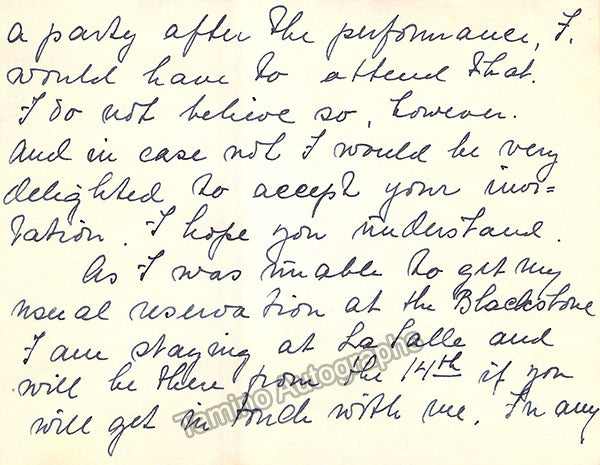 a party after the performance, I.
would have to attend that.
I do not believe so, however.
And in case not I would be very
delighted to accept your invi=
tation. I hope you understand.
As I was unable to get my
usual reservation at the Blackstone
I am staying at La Salle and
will be there from the 14th if you
will get in touch with me. In any
Tamino Autographs